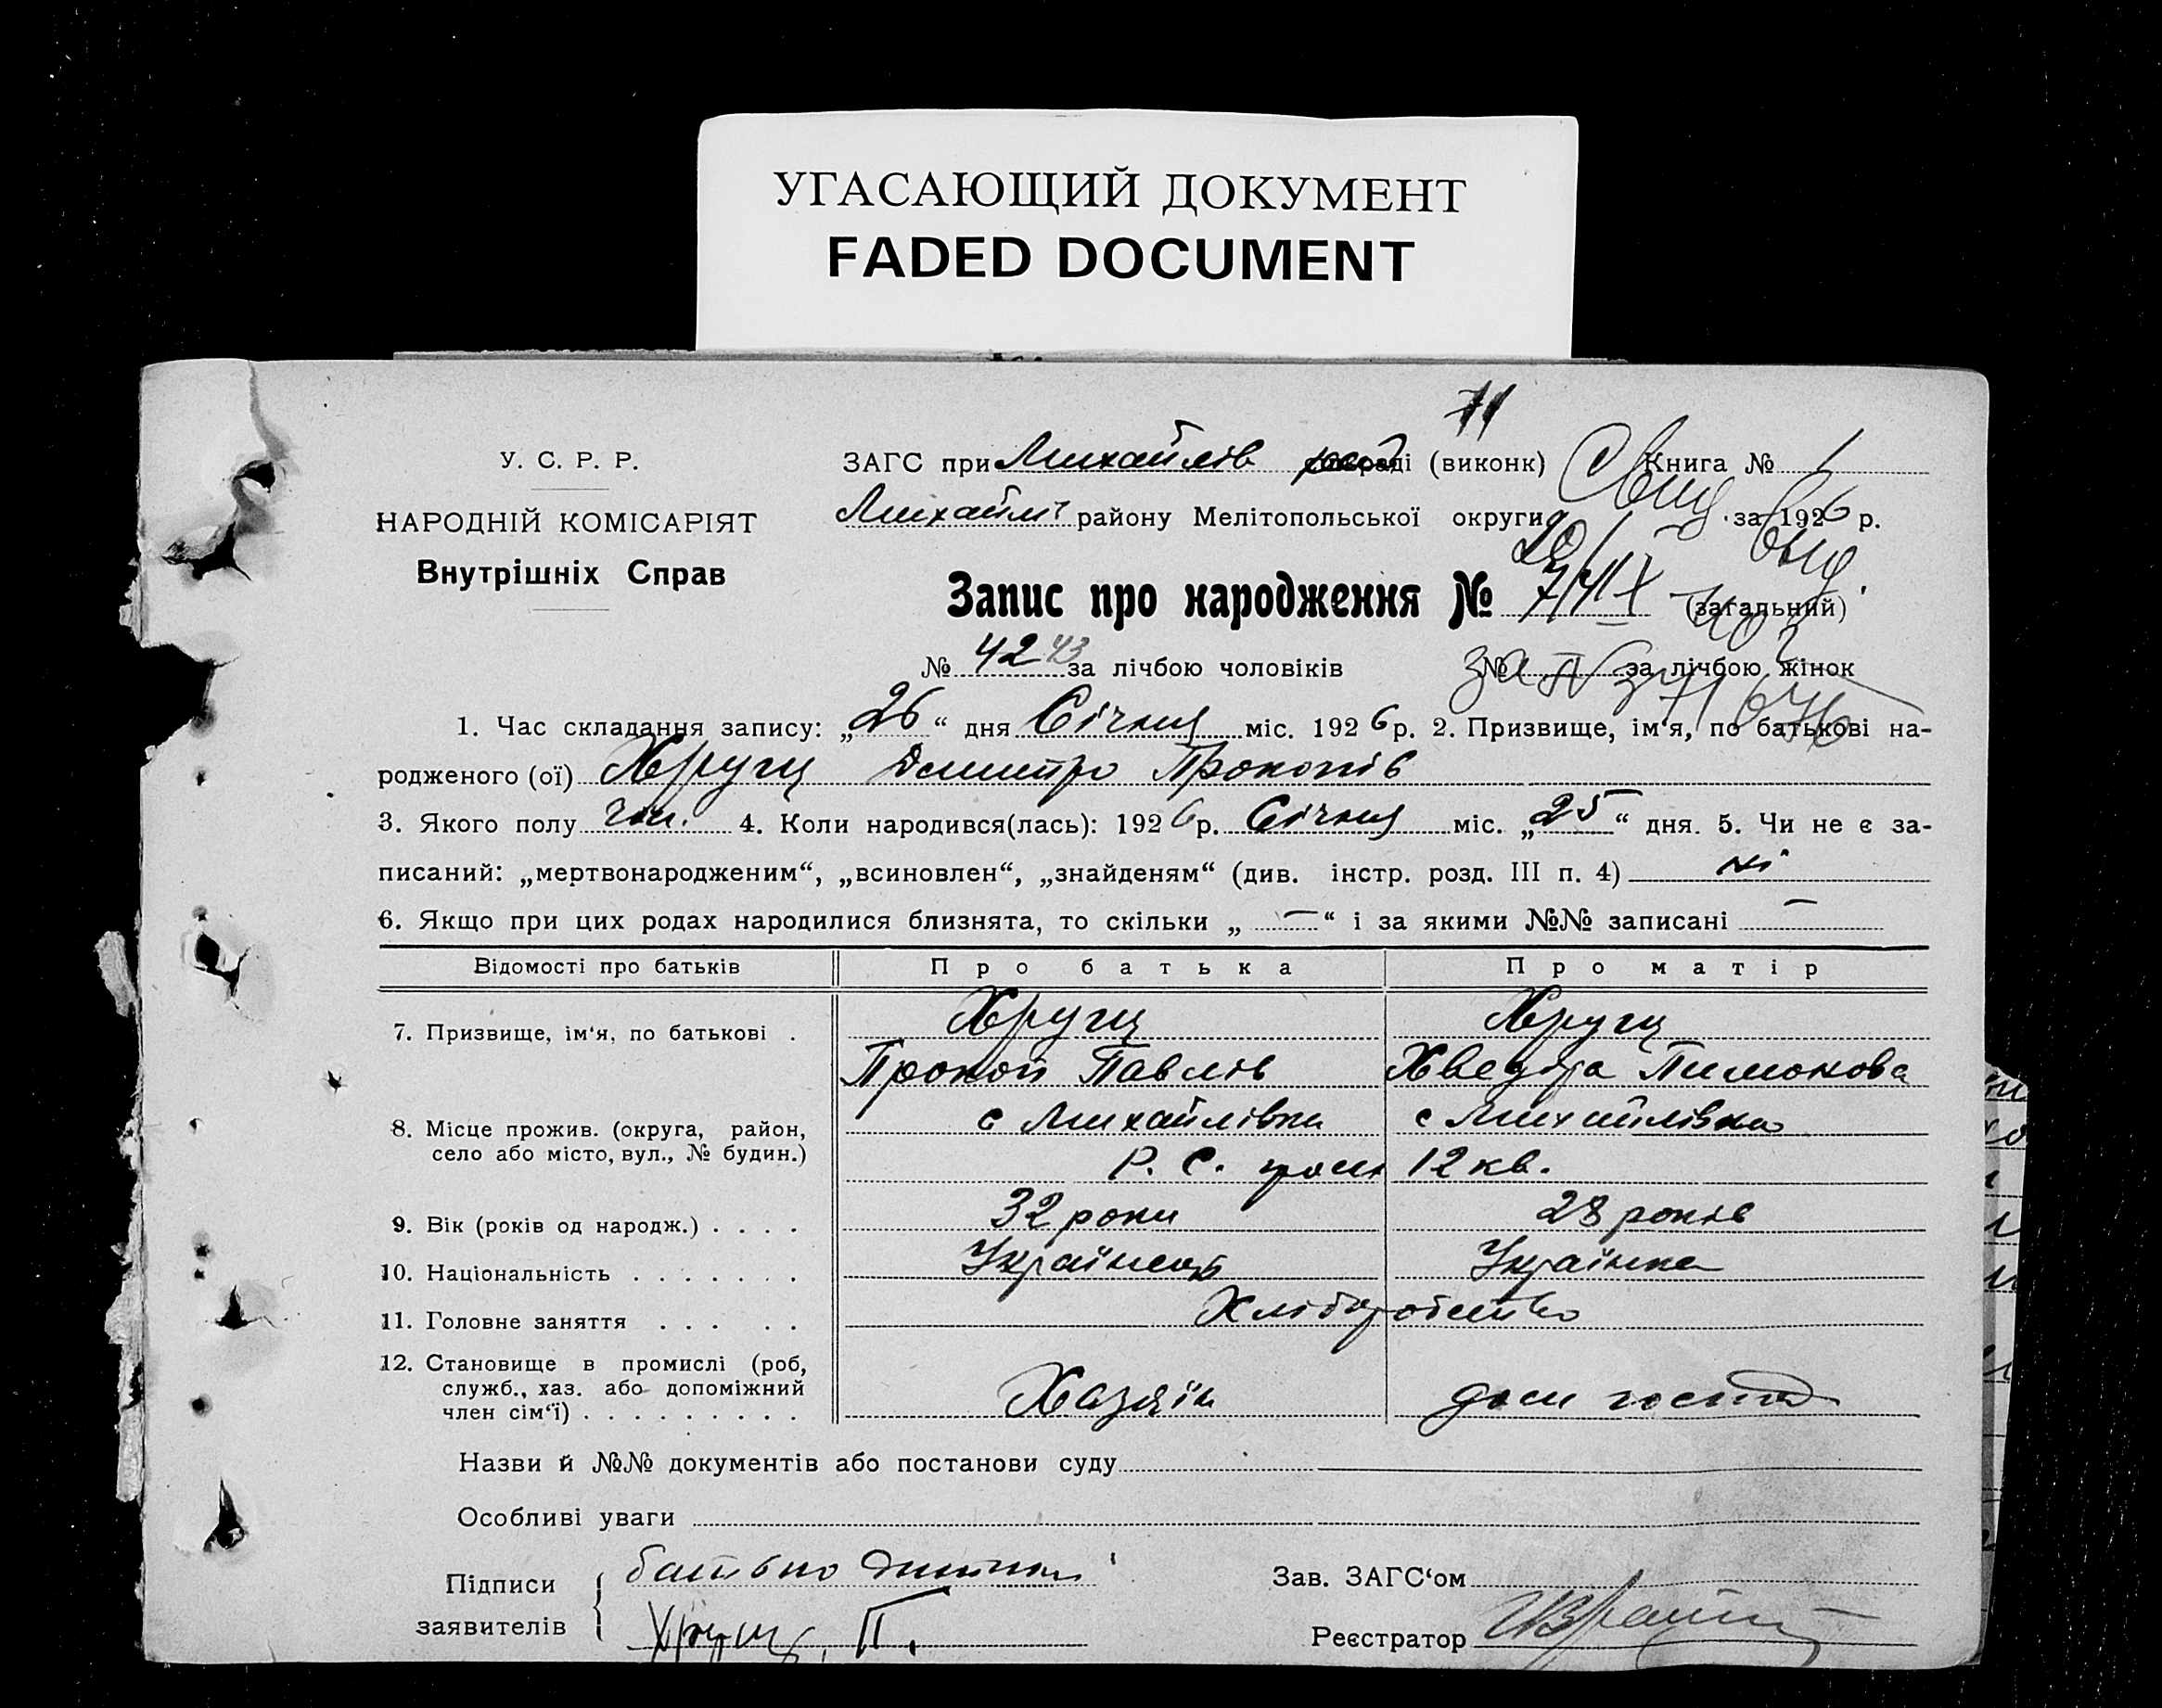 УГАСАЮЩИЙ ДОКУМЕНТ
FADED DOCUMENT
71
У. С. Р. Р.
НАРОДНІЙ КОМІСАРІЯТ
Внутрішніх Справ
ЗАГС при Михайлів раді (виконк) Книга № 1
Михайл району Мелітопольської округи за 1926 р.
Запис про народження № (загальний)
№ 42 43 за лічбою чоловіків № за лічбою жінок
1. Час складання запису: „26“ дня Січня міс. 1926 р. 2. Призвище, ім'я, по батькові на-
родженого (ої) Хрущ Дмитро Прокопів
3. Якого полу чол. 4. Коли народився(лась): 1926 р. Січня міс. „25“ дня. 5. Чи не є за-
писаний: „мертвонародженим“, „всиновлен“, „знайденям“ (див. інстр. розд. III п. 4) ні
6. Якщо при цих родах народилися близнята, то скільки „ — “ і за якими №№ записані —
Відомості про батьків Про батька Про матір
7. Призвище, ім'я, по батькові . Хрущ Хрущ
Прокоп Павлів Хведора Пимонова
8. Місце прожив. (округа, район, с Михайлівка с Михайлівка
село або місто, вул., № будин.) Р. С. 12 кв.
9. Вік (років од народж.) . . . . 32 роки 28 років
10. Національність . . . . . . . Українець Українка
11. Головне заняття . . . . . Хліборобство
12. Становище в промислі (роб,
служб., хаз. або допоміжний
член сім'ї) . . . . . . . . . Хазяїн дом господ
Назви й №№ документів або постанови суду
Особливі уваги
Підписи батько дитини
заявителів Хрущ П.
Зав. ЗАГС'ом
Реєстратор